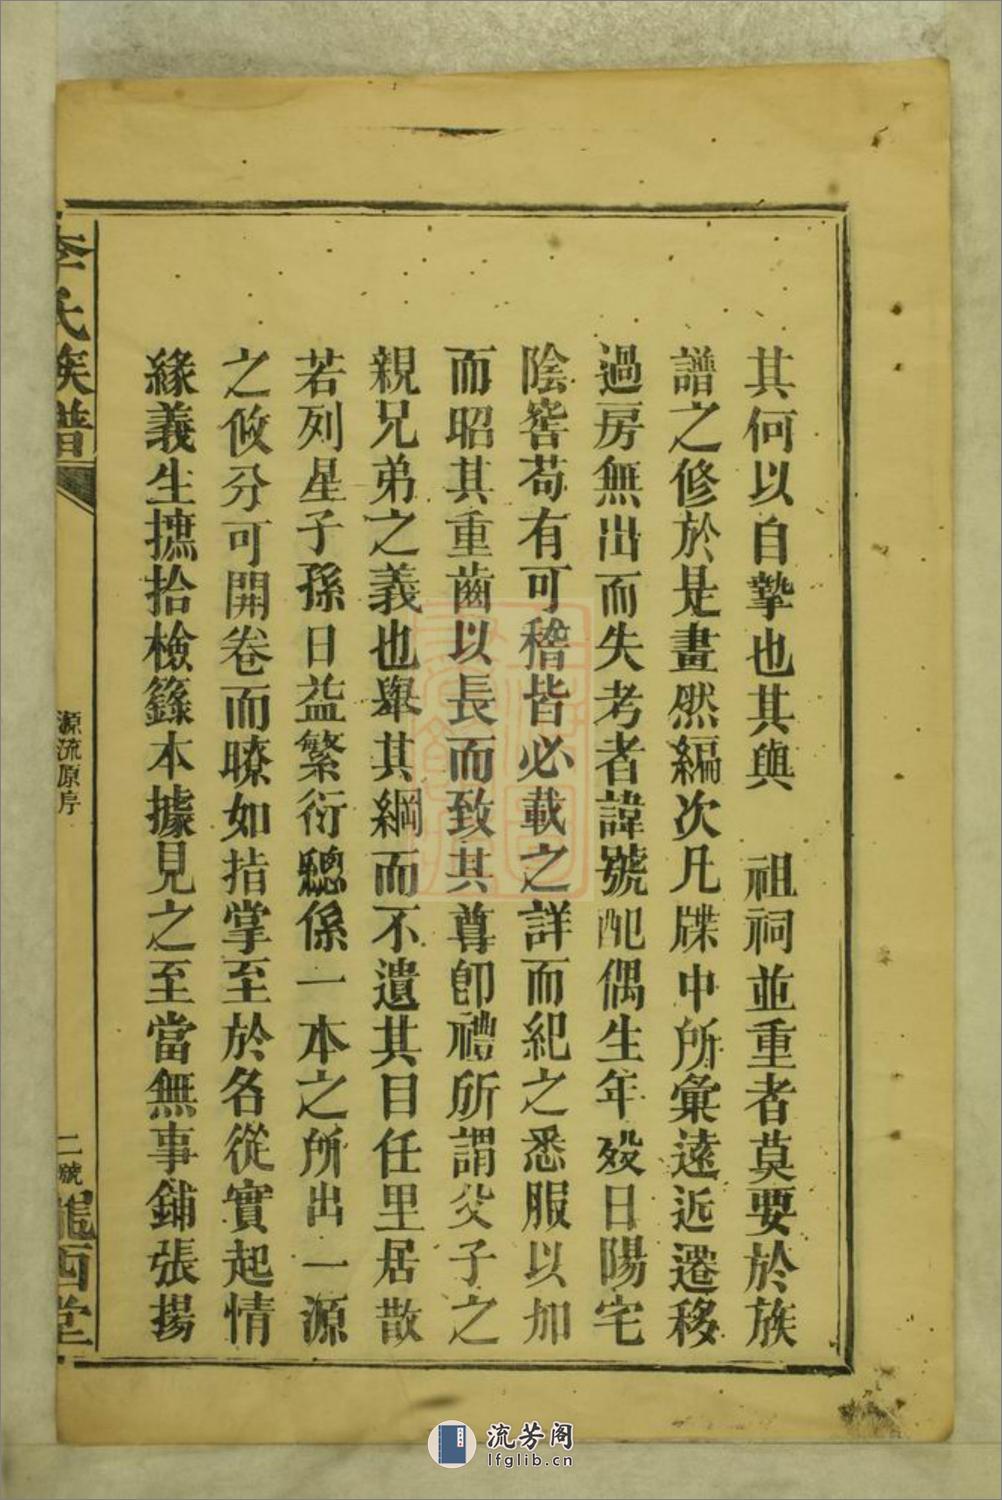 其何以自摯也其與　祖祠並重者莫要於族
譜之修於是畫然編次凡牒中所彙遠近遷移
過房無出而失考者諱號配偶生年歿日陽宅
陰窖苟有可稽皆必載之詳而紀之悉服以加
而昭其重齒以長而致其尊卽禮所謂父子之
親兄弟之義也舉其綱而不遺其目任里居散
若列星子孫日益繁衍總係一本之所出一源
之攸分可開卷而暸如指掌至於各從實起情
緣義生摭拾檢籙本據見之至當無事鋪張揚
李氏族譜
源流原序
二號
隴西堂
流芳阁
lfglib.cn